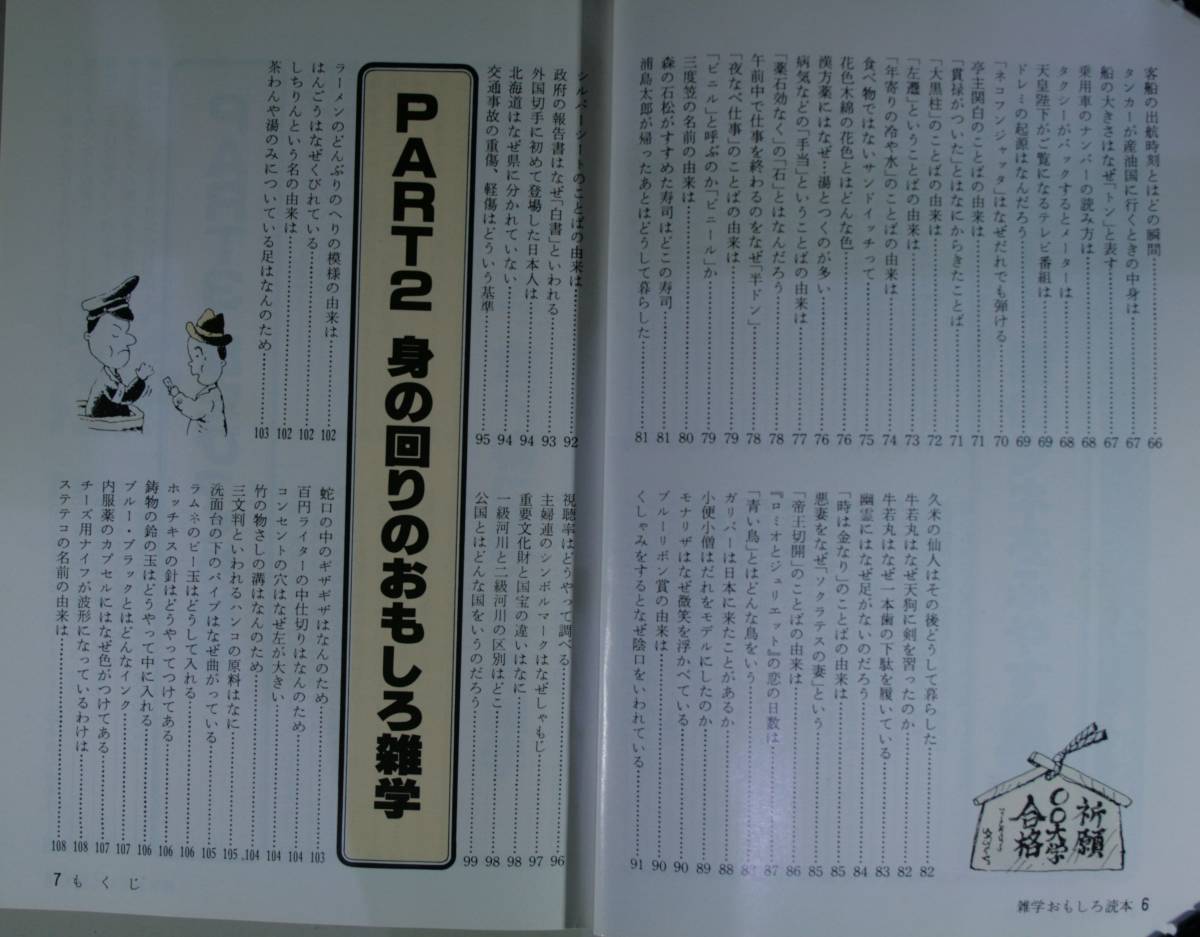 客船の出航時刻とはどの瞬間……66
タンカーが産油国に行くときの中身は……67
船の大きさはなぜ「トン」と表す……67
乗用車のナンバーの読み方は……68
タクシーがバックするとメーターは……68
天皇陛下がご覧になるテレビ番組は……69
ドレミの起源はなんだろう……69
「ネコフンジャッタ」はなぜだれでも弾ける……70
亭主関白のことばの由来は……71
「貫禄がついた」とはなにからきたことば……71
「大黒柱」のことばの由来は……72
「左遷」ということばの由来は……73
「年寄りの冷や水」のことばの由来は……74
食べ物ではないサンドイッチって……75
花色木綿の花色とはどんな色……76
漢方薬にはなぜ…湯とつくのが多い……76
病気などの「手当」ということばの由来は……77
「薬石効なく」の「石」とはなんだろう……78
午前中で仕事を終わるのをなぜ「半ドン」……78
「夜なべ仕事」のことばの由来は……79
「ビニル」と呼ぶのか「ビニール」か……79
三度笠の名前の由来は……80
森の石松がすすめた寿司はどこの寿司……81
浦島太郎が帰ったあとはどうして暮らした……81
久米の仙人はその後どうして暮らした……82
牛若丸はなぜ天狗に剣を習ったのか……82
牛若丸はなぜ一本歯の下駄を履いている……83
幽霊にはなぜ足がないのだろう……84
「時は金なり」のことばの由来は……85
悪妻をなぜ「ソクラテスの妻」という……85
「帝王切開」のことばの由来は……86
『ロミオとジュリエット』の恋の日数は……87
「青い鳥」とはどんな鳥をいう……87
ガリバーは日本に来たことがあるか……88
小便小僧はだれをモデルにしたのか……89
モナリザはなぜ微笑を浮かべている……90
ブルーリボン賞の由来は……90
くしゃみをするとなぜ陰口をいわれている……91
祈願
〇〇大学
合格
雑学おもしろ読本 6
シルバーシートのことばの由来は……92
政府の報告書はなぜ「白書」といわれる……93
外国切手に初めて登場した日本人は……94
北海道はなぜ県に分かれていない……94
交通事故の重傷、軽傷はどういう基準……95
視聴率はどうやって調べる……96
主婦連のシンボルマークはなぜしゃもじ……97
重要文化財と国宝の違いはなに……98
一級河川と二級河川の区別はどこ……98
公国とはどんな国をいうのだろう……99
PART2 身の回りのおもしろ雑学
ラーメンのどんぶりのへりの模様の由来は……102
はんごうはなぜくびれている……102
しちりんという名の由来は……102
茶わんや湯のみについている足はなんのため……103
蛇口の中のギザギザはなんのため……103
百円ライターの中仕切りはなんのため……104
コンセントの穴はなぜ左が大きい……104
竹の物さしの溝はなんのため……104
三文判といわれるハンコの原料はなに……105
洗面台の下のパイプはなぜ曲がっている……105
ラムネのビー玉はどうして入れる……106
ホッチキスの針はどうやってつけてある……106
鋳物の鈴の玉はどうやって中に入れる……106
ブルー・ブラックとはどんなインク……107
内服薬のカプセルにはなぜ色がつけてある……107
チーズ用ナイフが波形になっているわけは……108
ステテコの名前の由来は……108
7 もくじ